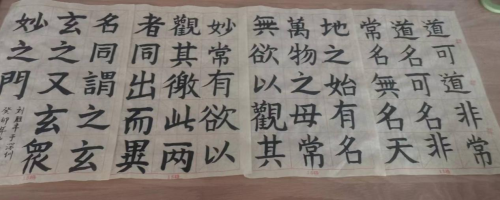 道可道非常
道名可名非
常名無名天
地之始有名
萬物之母常
無欲以觀其
妙常有欲以
觀其徼此两
者同出而異
名同謂之玄
玄之又玄眾
妙之門
癸卯年